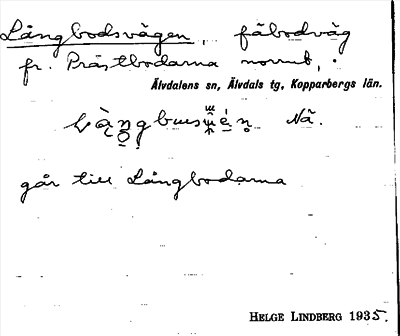 Långbodsvägen, fäbodväg
fr. Prästbodarna norrut,
Älvdalens sn, Älvdals tg, Kopparbergs län.
Nä.
går till Långbodarna
HELGE LINDBERG 1935.